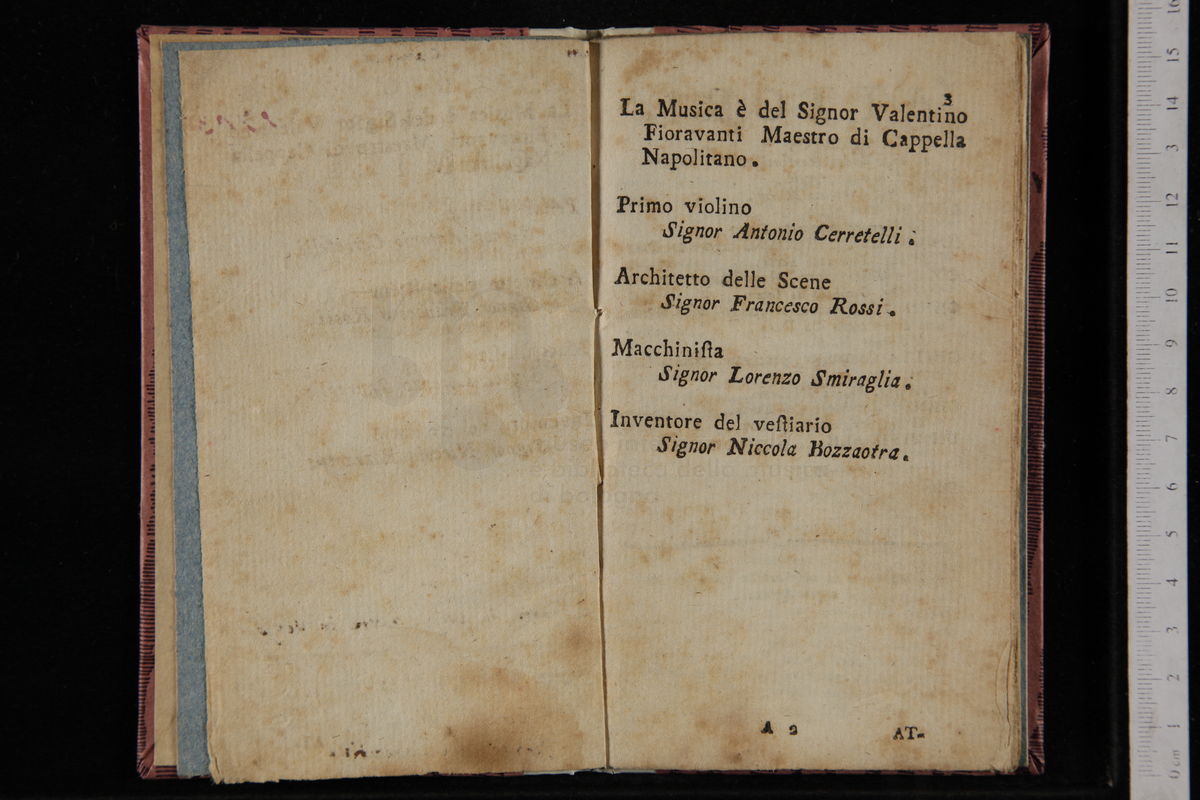 3
La Musica è del Signor Valentino
Fioravanti Maestro di Cappella
Napolitano.
Primo violino
Signor Antonio Cerretelli.
Architetto delle Scene
Signor Francesco Rossi.
Macchiniſta
Signor Lorenzo Smiraglia.
Inventore del veſtiario
Signor Niccola Bozzaotra.
A 2
AT-
0 cm 1 2 3 4 5 6 7 8 9 10 11 12 3 14 15 16